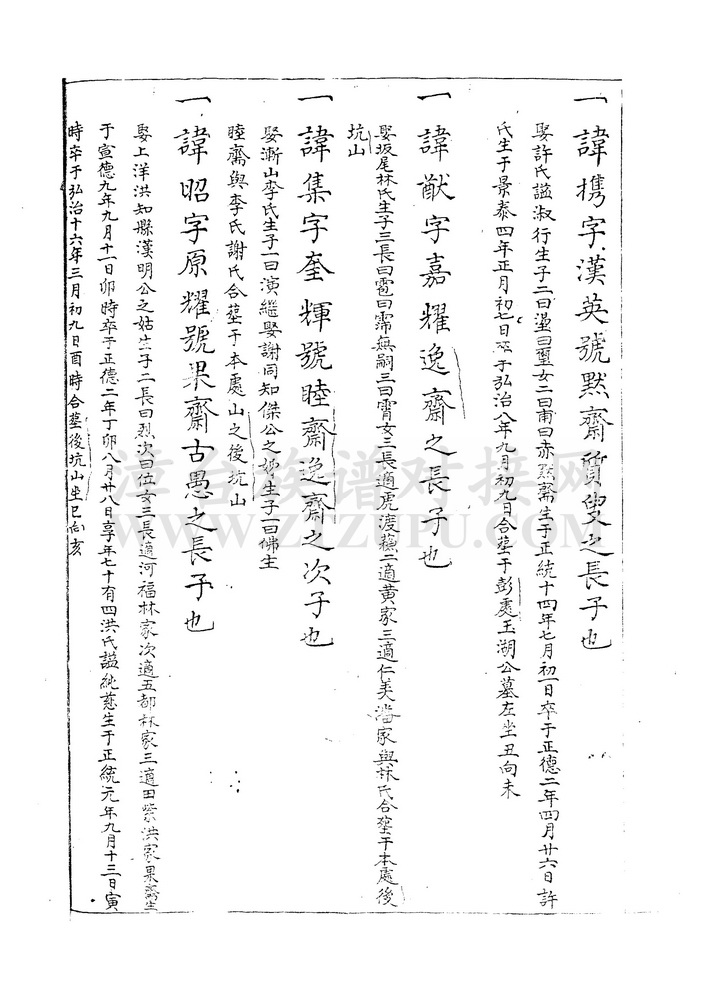 一諱携字漢英號黙齋質叟之長子也
娶許氏謚淑行生子二曰曰璽女二曰甫曰赤黙齋生于正統十四年七月初一日卒于正德二年四月廿六日許
氏生于景泰四年正月初七日卒于弘治八年九月初九日合墓于彭處玉湖公墓左坐丑向未
一諱猷字嘉耀逸齋之長子也
娶坂尾林氏生子三長曰雹曰霈無嗣三曰霄女三長適虎渡蘓二適黄家三適仁美潘家與林氏合塟于本處後
坑山
一諱集字奎輝號睦齋逸齋之次子也
娶漸山李氏生子一曰演繼娶謝同知傑公之姊生子一曰佛生
睦齋與李氏謝氏合墓于本處山之後坑山
一諱昭字原耀號果齋古愚之長子也
娶上洋洪知縣漢明公之姑生子二長曰烈次曰位女三長適河福林家次適五都林家三適田紫洪家果齋生
于宣德九年九月十一日卯時卒于正德二年丁卯八月廿八日享年七十有四洪氏謚純慈生于正統元年九月十三日寅
時卒于弘治十六年三月初九日酉時合墓後坑山坐巳向亥
漳台族谱对接网
WWW.ZTZUPU.COM